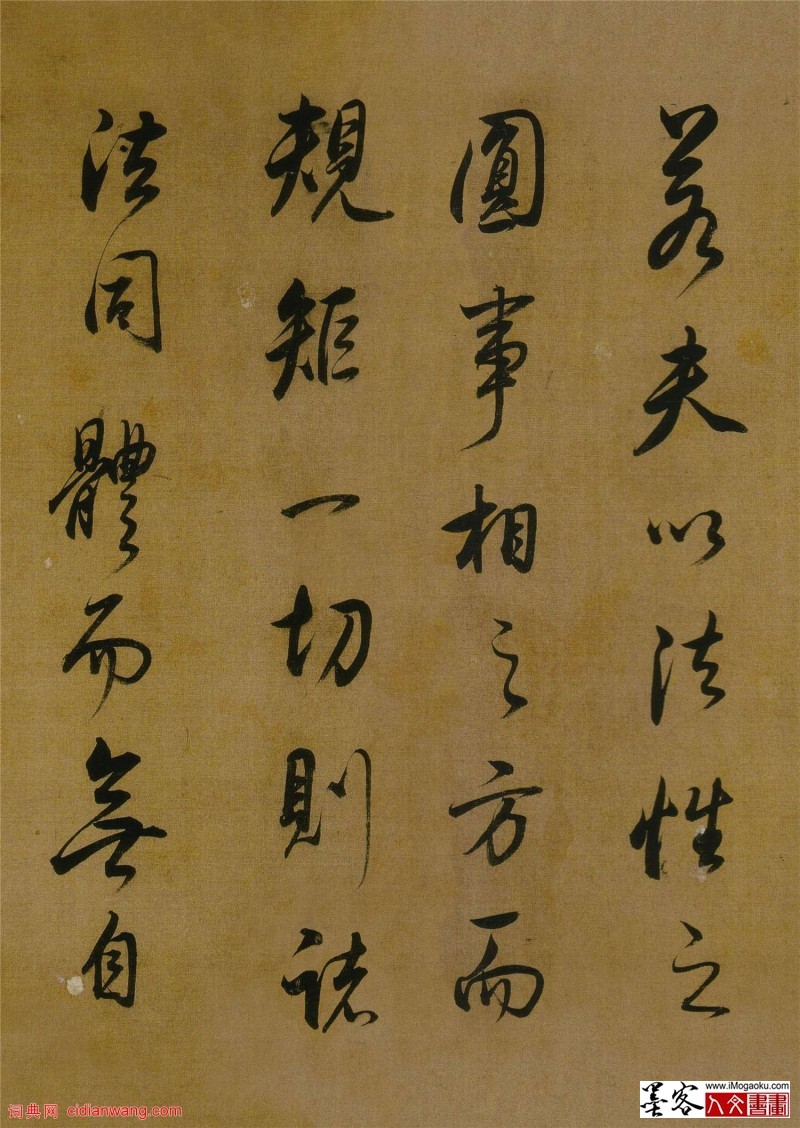 若夫以法性之
圓事相之方而
規矩一切則諸
法同體而無自
词典网 cidianwang.com
www.iMogaoku.com
墨客 人文書畫